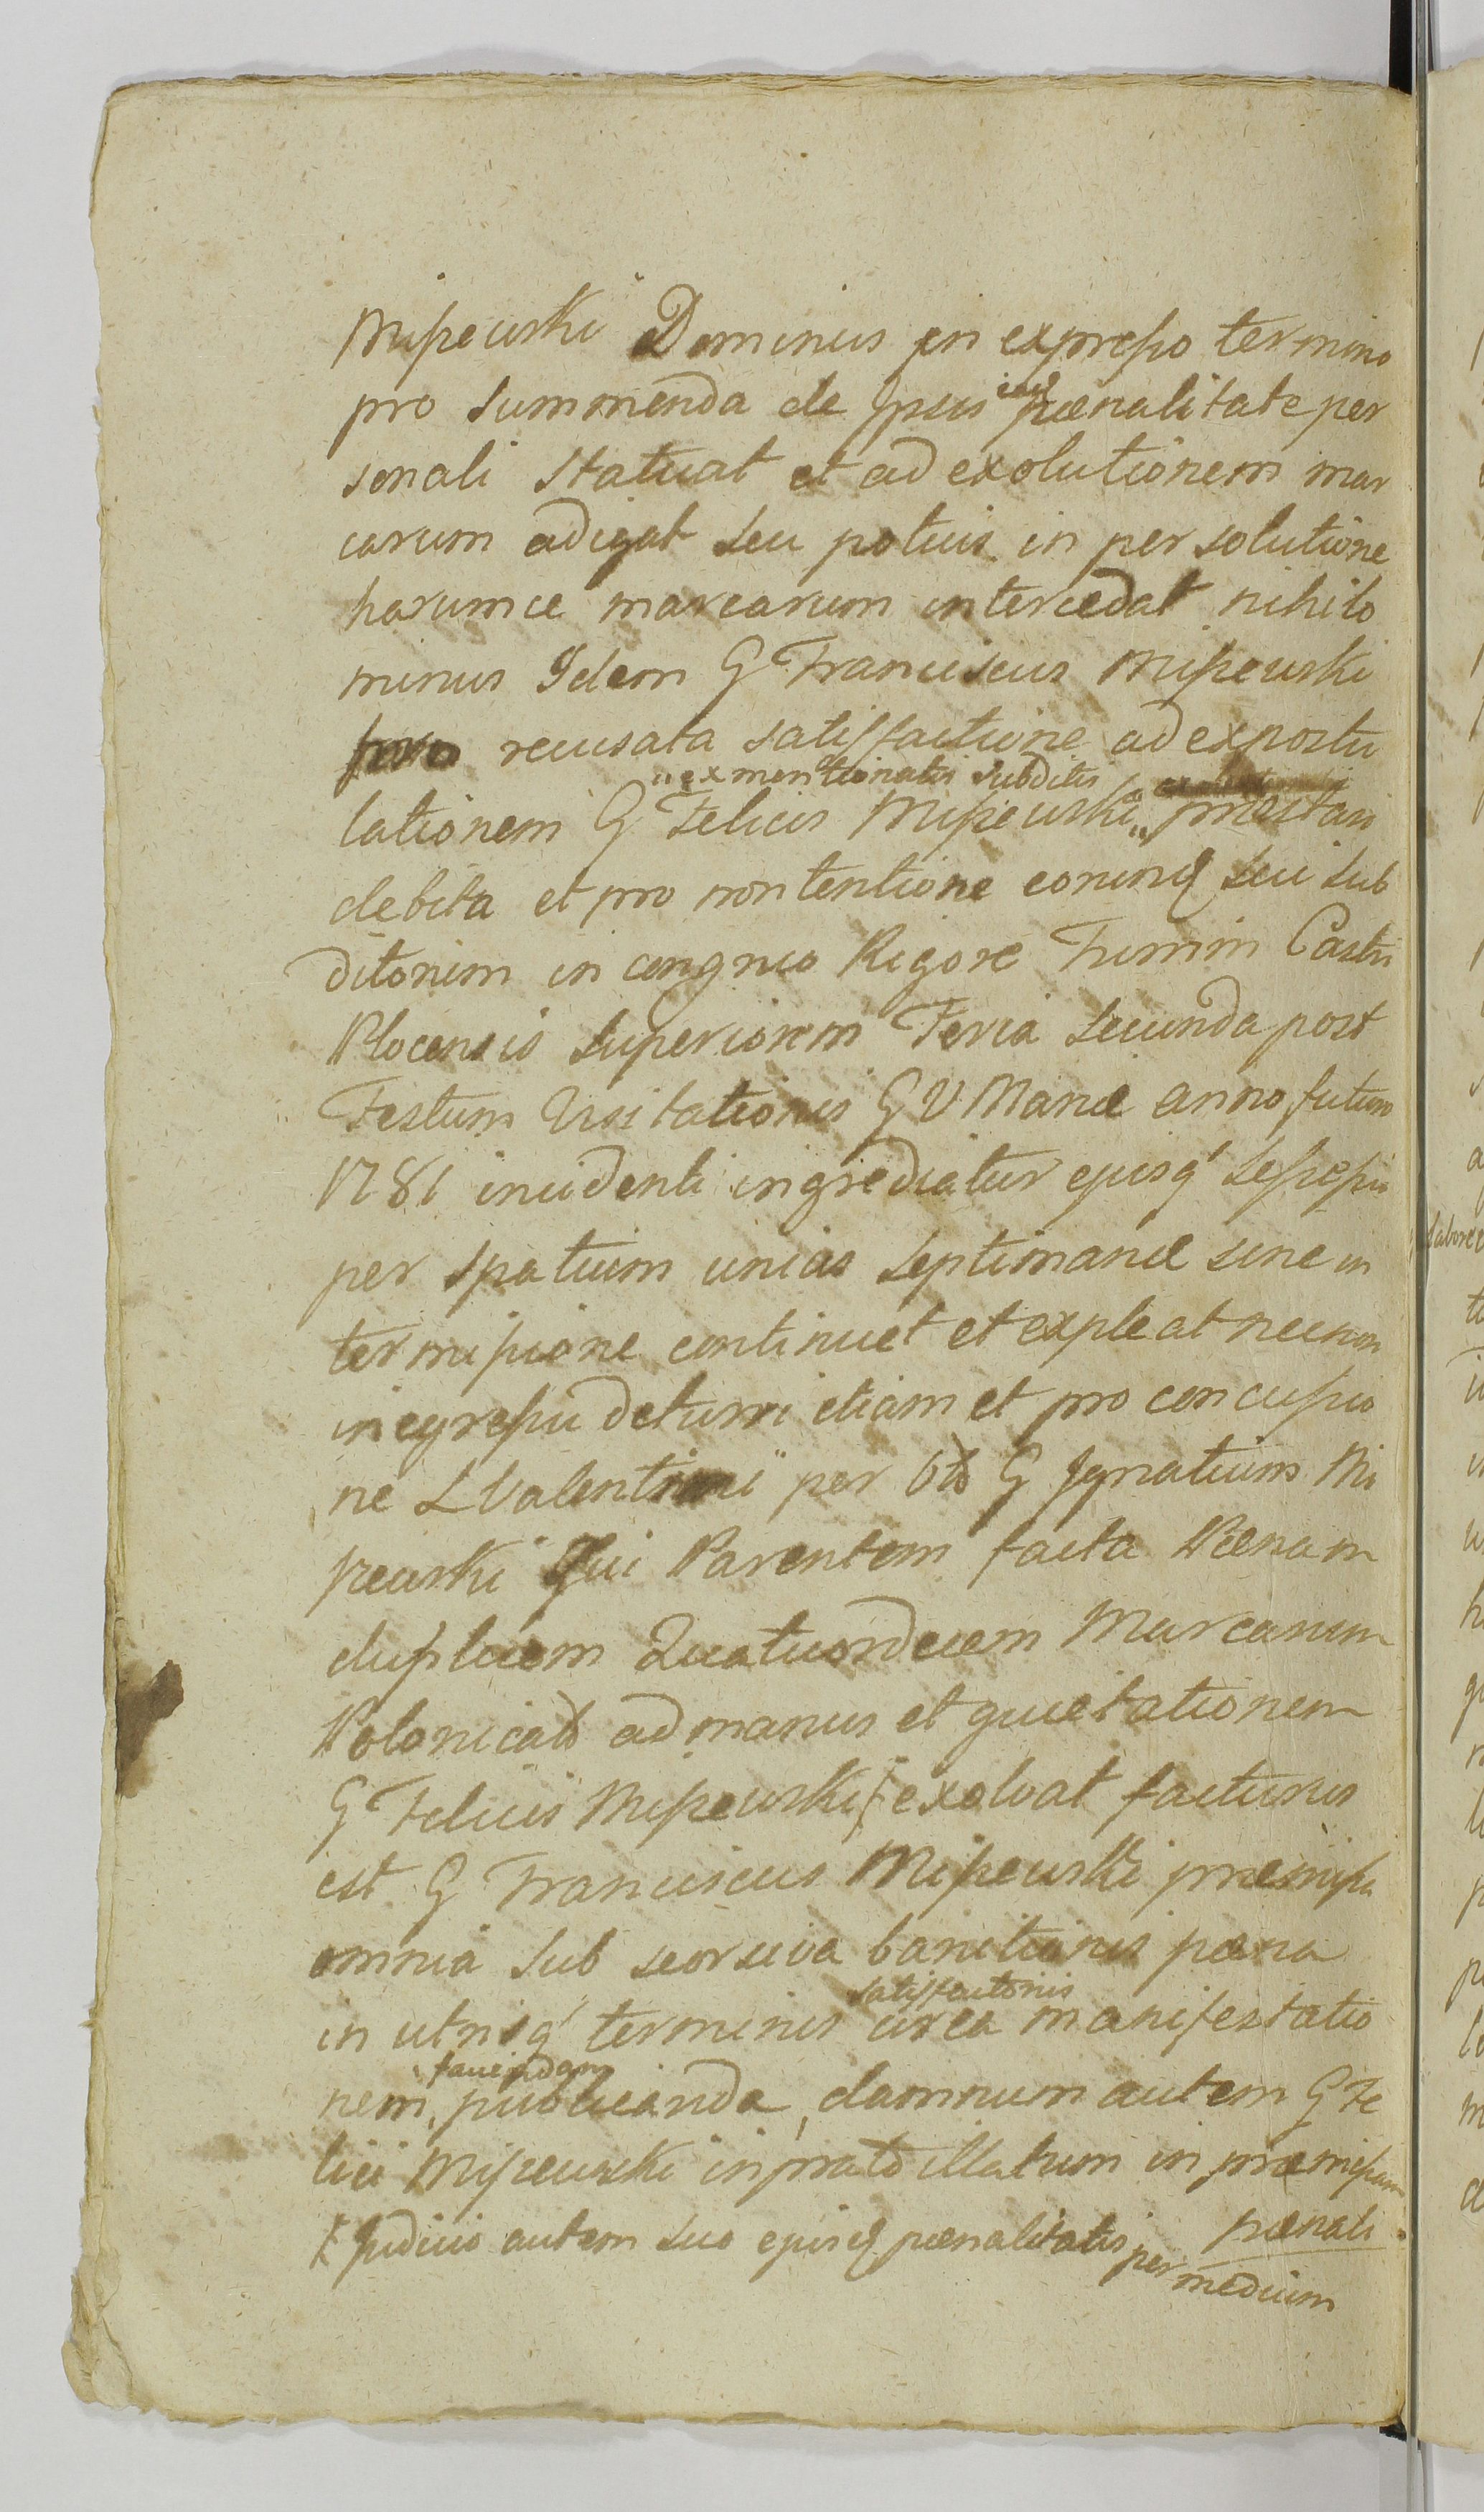 Miszewski Dominus in expresso termino
pro summenda de Ipsis poenalitate per
sonali statuat et ad exolutionem mar
carum adigat seu potius in persolutione
harumce marcarum intercedat nihilo
minus Idem G Franciscus Miszewski
pro recusata satisfactione ad expostu
"ex mentionatis subditis
lationem G Felicis Miszewski " praestari
debita et pro non tentione eorunq seu sub
ditorum in congruo Rigore Turrim Castri
Plocensis superiorem Feria secunda post
Festum Visitationis G V Mariae anno futuro
1781 incidenti ingrediatur ejusq' sessess
per spatium unius septimanae sine in
termissione continuet et expleat necnon
in egressu de turri etiam et pro concussio
ne L Valentini per G Ignatium Mi
szewski Sui Parentem facta Poenam
duplicem Quatuordecem Marcarum
Polonical ad manus et quietationem
G Felicis Miszewski exolvat facturus
est G Franciscus Miszewski praemissa
omnia sub seorsiva banitionis poena
satisfactionis
in utrisq' terminis circa manifestatio
faciendam
nem, publicanda, damnum autem G Fe
lici Miszewski in prato illatum in praemissam
poenali
Judicio autem suo ejusq poenalitatis per
medium
labore